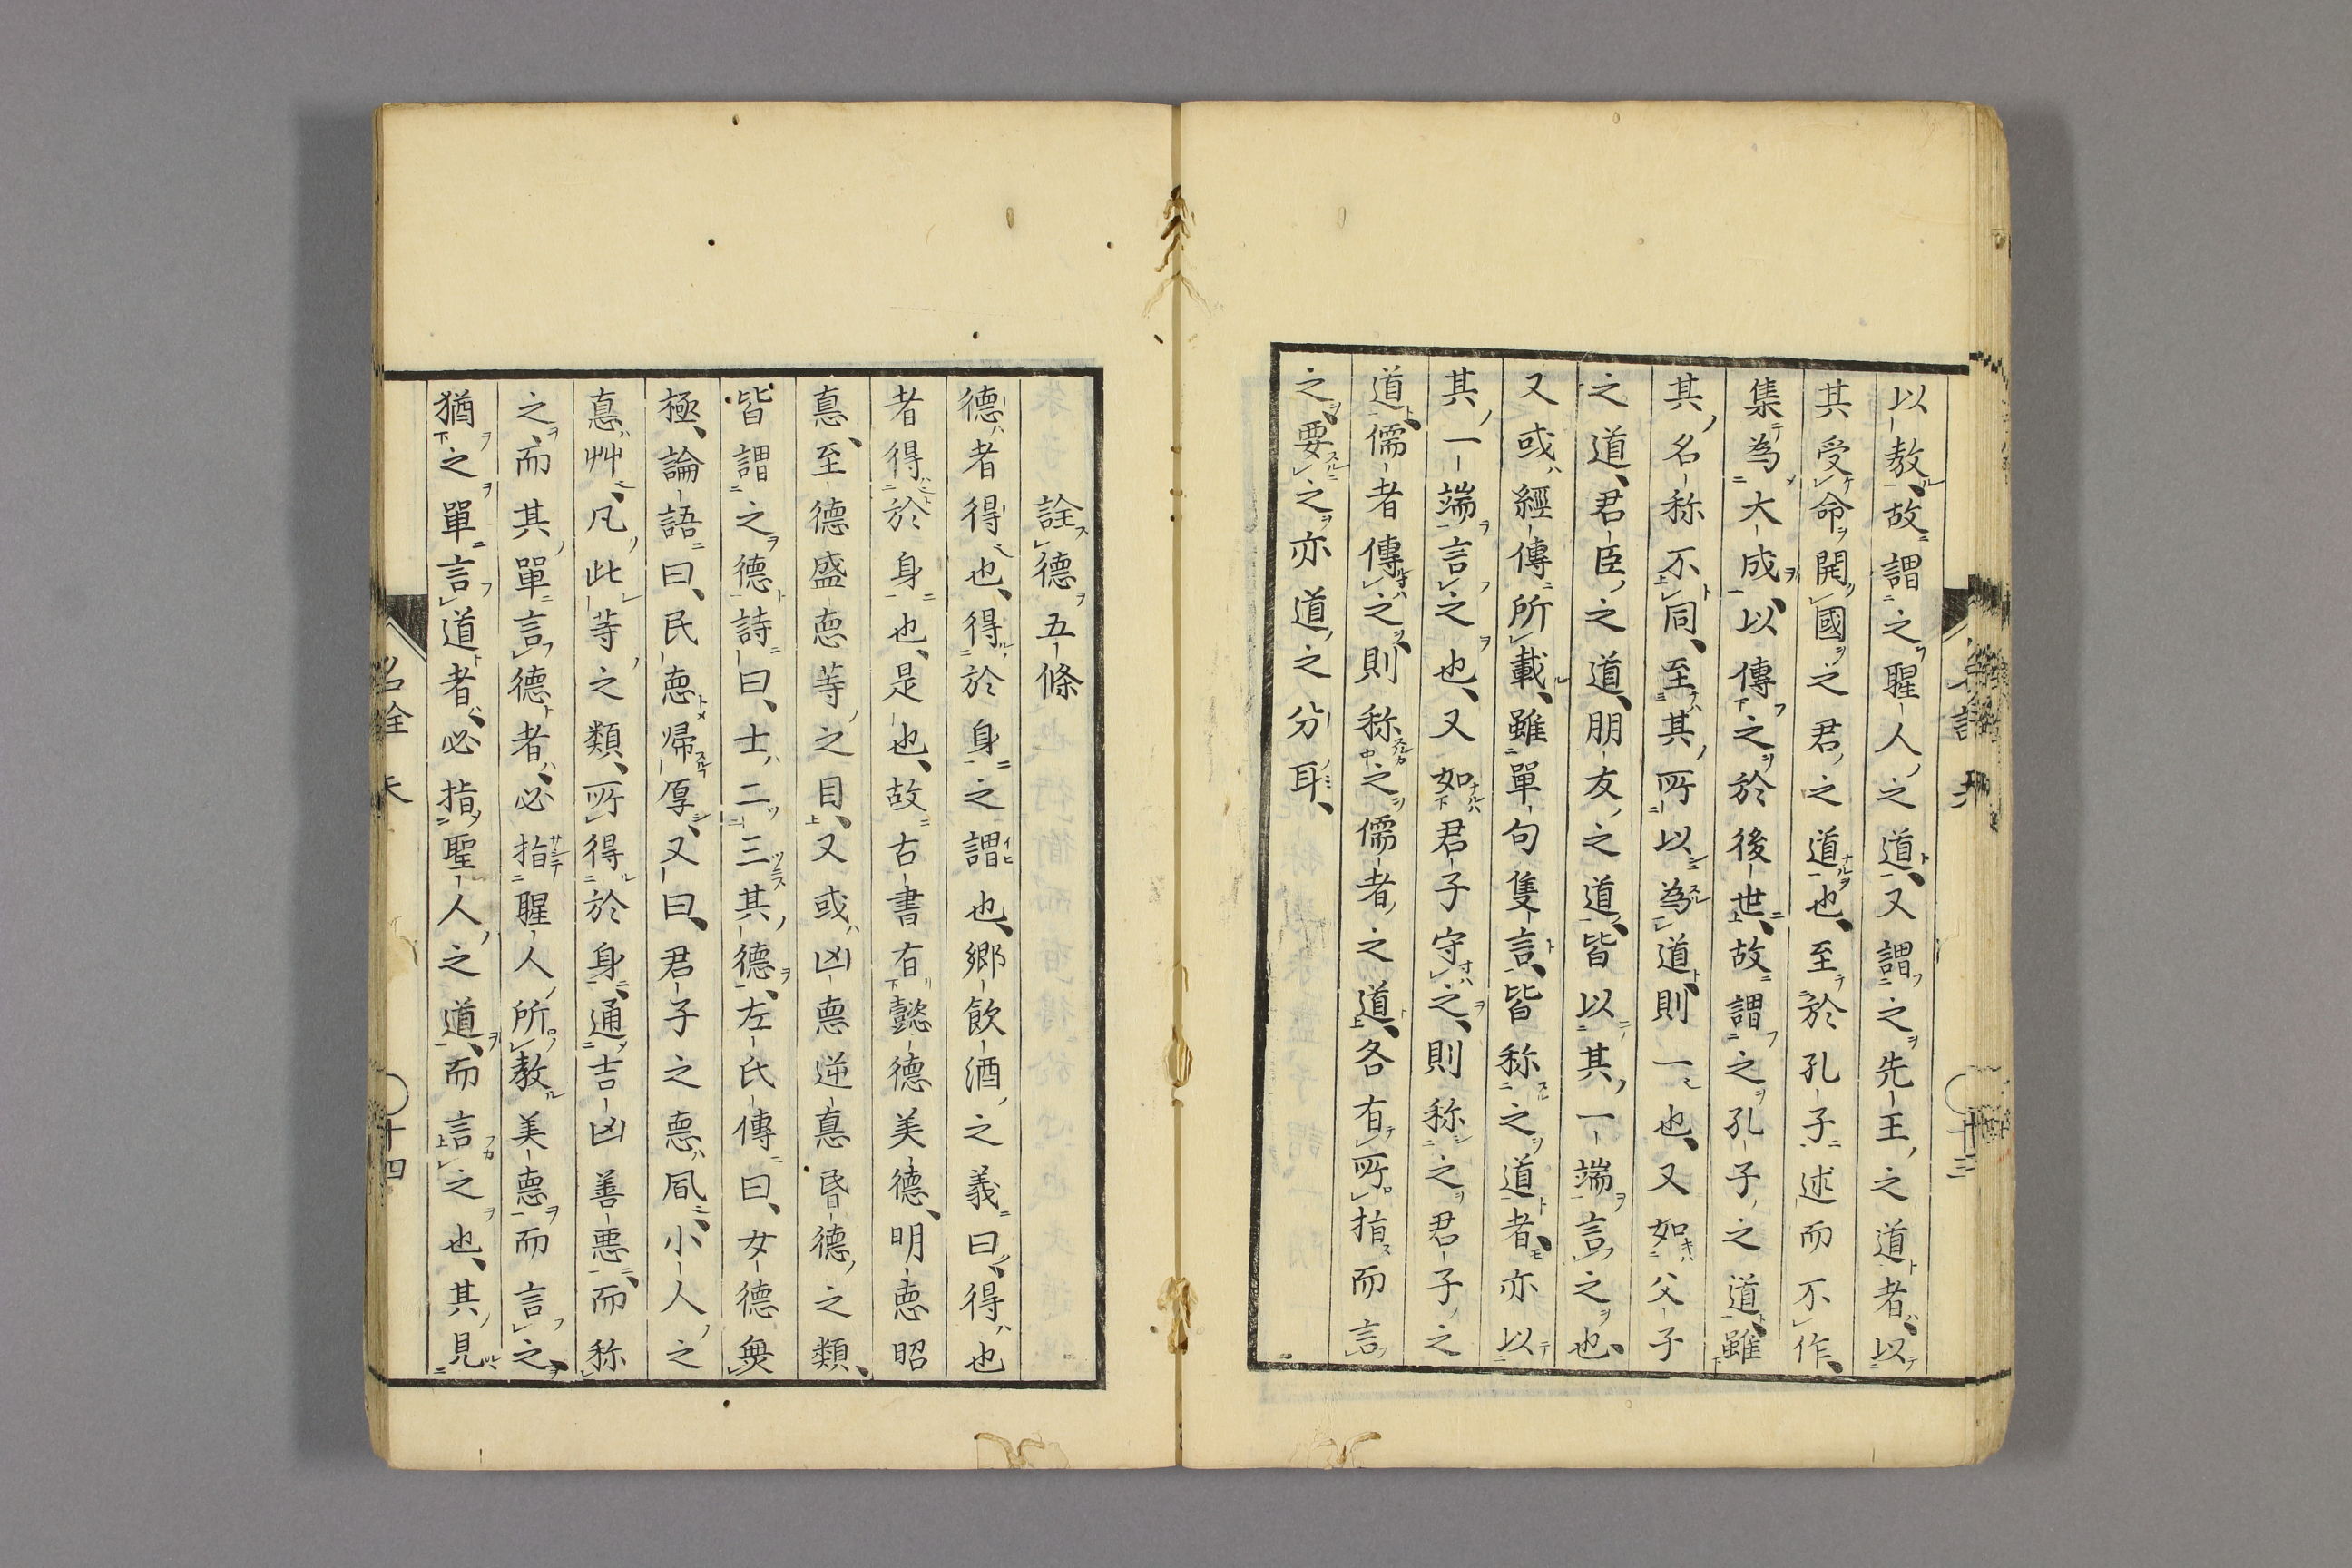 以敎故謂之聖人之道又謂之先王之道者以
其受命開國之君之道也至於孔子述而不作
集為大成以傳之於後世故謂之孔子之道雖
其名称不同至其所以為道則一也又如父子
之道君臣之道朋友之道皆以其一端言之也
又或經傳所載雖單句隻言皆称之道者亦以
其一端言之也又如君子守之則称之君子之
道儒者傳之則称之儒者之道各有所指而言
之要之亦道之分耳
詮德五條
德者得也得於身之謂也鄉飲酒之義曰得也
者得於身也是也故古書有懿德美德明悳昭
悳至德盛悳等之目又或凶悳逆悳昏德之類
皆謂之德詩曰士二三其德左氏傳曰女德無
極論語曰民悳歸厚又曰君子之悳風小人之
悳艸凡此等之類所得於身通吉凶善悪而称
之而其單言德者必指聖人所敎美悳而言之
猶之單言道者必指聖人之道而言之也其見
名詮 天
十四